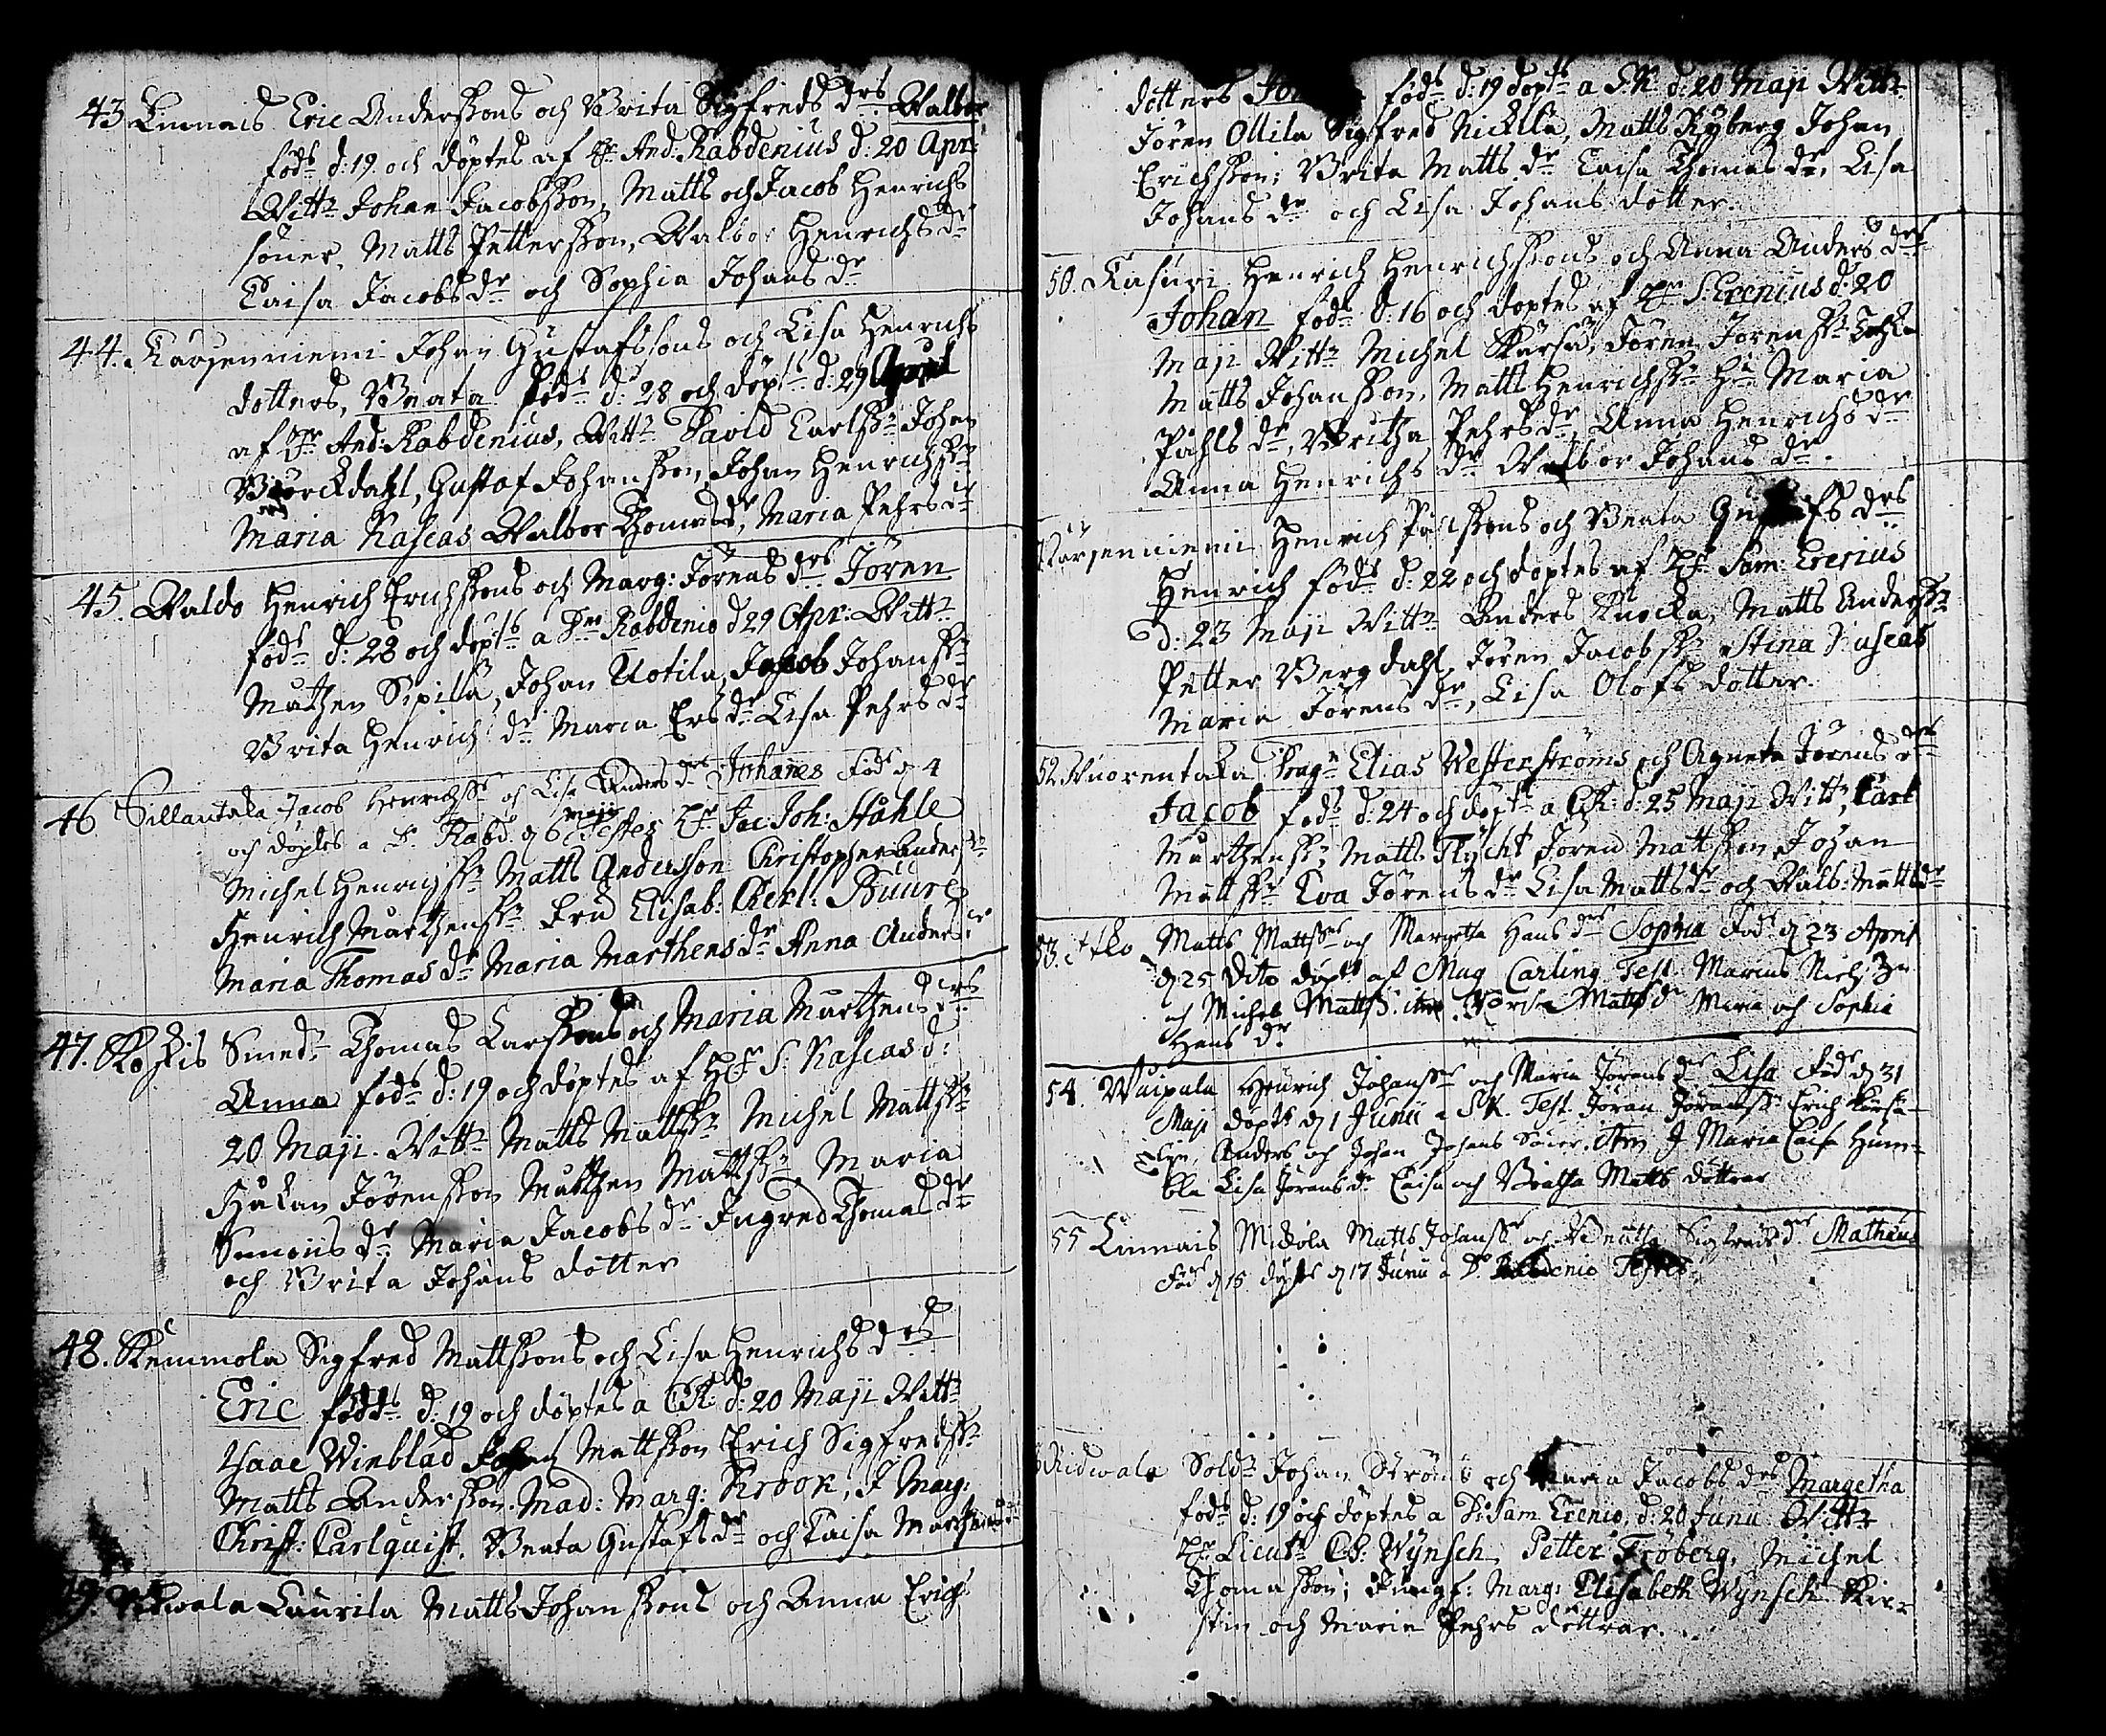 43 Limnais Eric Anderssons och Brita Sigfreds drs Walbor
föds d: 19 och döptes af Hr And: Rabdenius d: 20 Apr:
Wittn Johan Jacobsson, Matts och Jacob Henrichs
söner, Matts Pettersson, Walbor Henrichs dr
Caisa Jacobs dr och Sophia Johans dr
44. Karjenniemi Johan Gustafssons och Lisa Henrichs
dotters, Beata föds d: 28 och döpts d: 29 April
af Hr And: Rabdenius, Wittn David Carlssn Johan
Biörckdahl, Gustaf Johansson, Johan Henrichssn
Maria Kaseas Walbor Thomas dr, Maria Pehrs dr
45. Waldo Henrich Erichssons och Marg: Jörens drs Jören
föds d: 28 och döpts a Dno Rabdenio d 29 Apr: Wittn
Mathen Sipilä, Johan Uotila, Jacob Johanssn
Brita Henrichs dr Maria Ers dr Lisa Pehrs dr
46 Sillantaka Jacob Henrichssr och Lisa Anders drs Johañes Föds d 4
och döptes a D. Rabd. d 6 Maji Testes Hr Jac: Joh: Ståhle
Michel Henrichssn Matts Andersson Christopher Anderssn
Henrich Marthenssn Fru Elisab: Cherl: Buure
Maria Thomas dr Maria Marthens dr Anna Anders dr
47. Koskis Smedn Thomas Larssons och Maria Marthens drs
Anna föds d: 19 och döptes af Hr S: Kaseas d:
20 Maji. Wittn Matts Mattssn Michel Mattssn
Håkan Jörensson Matthen Mattssn, Maria
Simons dr Maria Jacobs dr Ingred Thomas dr
och Brita Johans dotter
48. Kemmola Sigfred Mattssons och Lisa Henrichs drs
Eric födds d: 19 och döptes a CR: d: 20 Maji Wittn
Isaac Winblad Johan Mattsson Erich Sigfredssn
Matts Andersson. Mad: Marg: Krook, J Marg:
Christ: Carlquist. Beata Gustafs dr och Caisa Marthens dr
49. Laurila Matts Johanssons och Anna Erichs
dotters föds d: 19 döpts a S.K. d: 20 Maji Wittn
Jören Ollila Sigfred Nickilä, Matts Ryberg Johan
Erichsson; Brita Matts dr Caisa Thomas dr, Lisa
Johans dr och Lisa Johans dotter.
50. Kasuri Henrich Henrichssons och Anna Anders drs
Johan föds d: 16 och döptes af Hr S: Erenius d: 20
Maji Wittn Michel Skärsä, Jören Jörenssn
Matts Johansson, Matts Henrichssn Maria
Påhls dr, Britha Pehrs dr, Anna Henrichs dr
Anna Henrichs dr Walbor Johans dr.
Karjenniemi Henrich Pålssons och Beata Gustafs drs
Henrich föds d: 22 och döptes af Hr Sam: Erenius
d: 23 Maji Wittn Anders Knocka, Matts Anderssn
Petter Bergdahl, Jören Jacobssn Stina Kaseas
Maria Jörens dr, Lisa Olofs dotter.
52. Wuorentaka Dragn Elias Westerströms och Agneta Jörens drs
Jacob föds d: 24 och döpts a CR: d: 25 Maji Wittn, Carl
Marthenssn, Matts Flycht Jören Mattsson Johan
Mattssn Eva Jörens dr Lisa Matts dr och Walb: Matts dr
53. Itko Matts Mattssns och Margetha Hans drs Sophia Föds d 23 April
d 25 dito döpts af Mag Carling Test Marcus Niels
och Michel Mattss. item Matts dr Maria och Sophia
Hans dr
54. Waipala Henrich Johanssns och Maria Jörens drs Lisa Föds d 31
Maji döpts d 1 Junii a S.K. Test Jöran Jöransson Erich
Anders och Johan Johans Söner. item J Maria Caisa Hum-
ble Lisa Jörans dr Caisa och Britha Matts döttrar
55 Limnais Mickola Matts Johanssns och Britha Sigfreds drs Mathias
Föds d 15 döpts d 17 Junii a D. Rabdenio Testes
Ridwala Soldn Johan Ströms och Maria Jacobs drs Margetha
föds d: 19 och döptes a D: Sam. Erenio, d: 20 Junii Wittn
Hr Lieutn Ch: Wynsch, Petter Fröberg, Michel
Thomasson; Jungf: Marg: Elisabeth Wynsch. Kir-
stin och Maria Pehrs döttrar.